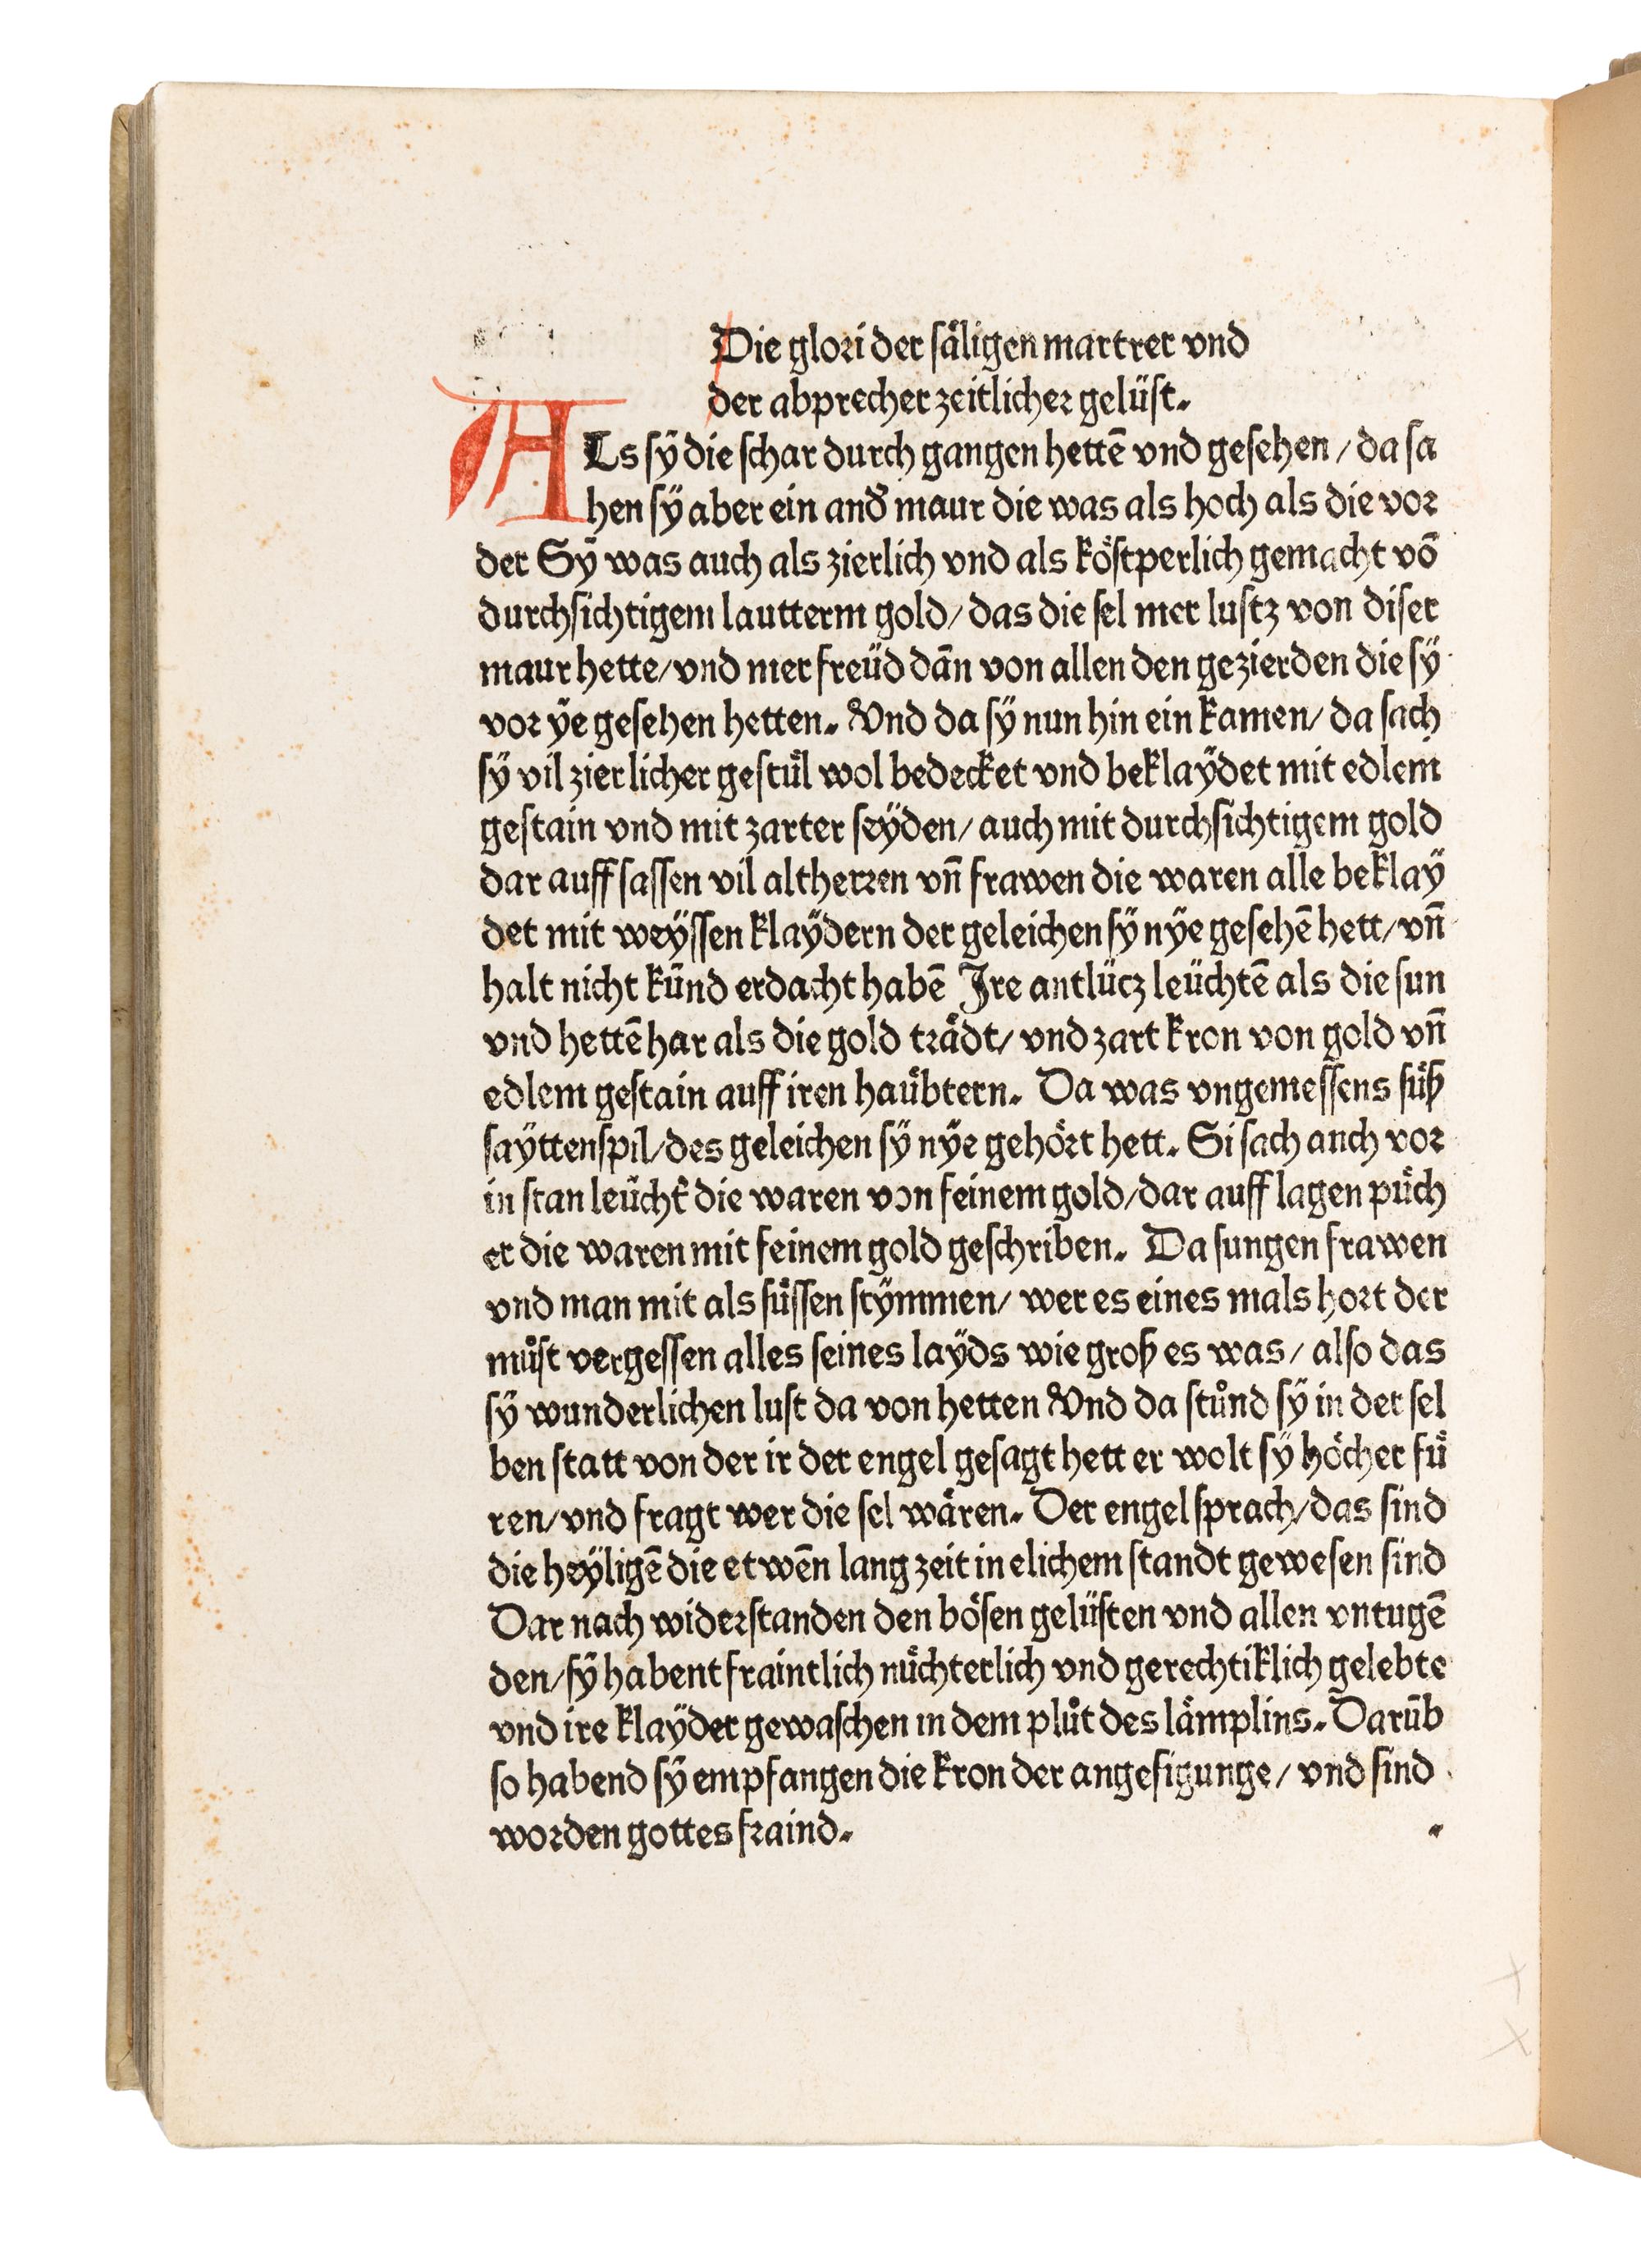 Die glori der säligen martrer vnd
der abprecher zeitlicher gelüst.
ALs sÿ die schar durch gangen hettē vnd gesehen / da sa
hen sÿ aber ein and̛ maur die was als hoch als die vor
der Sÿ was auch als zierlich vnd als köstperlich gemacht vō
durchsichtigem lautterm gold / das die sel mer lustz von diser
maur hette / vnd mer freüd dān von allen den gezierden die sÿ
vor ÿe gesehen hetten. Vnd da sÿ nun hin ein kamen / da sach
sÿ vil zierlicher gestül wol bedecket vnd beklaÿdet mit edlem
gestain vnd mit zarter seÿden / auch mit durchsichtigem gold
dar auff sassen vil altherren vn̄ frawen die waren alle beklaÿ
det mit weÿssen klaÿdern der geleichen sÿ nÿe gesehē hett / vn̄
halt nicht künd erdacht habē Jre antlücz leüchtē als die sun
vnd hettē har als die gold trädt / vnd zart kron von gold vn̄
edlem gestain auff iren haübtern. Da was vngemessens süß
saÿttenspil / des geleichen sÿ nÿe gehört hett. Si sach anch vor
in stan leücht̛ die waren von feinem gold / dar auff lagen püch
er die waren mit feinem gold geschriben. Da sungen frawen
vnd man mit als süssen stÿmmen / wer es eines mals hort der
müst vergessen alles seines laÿds wie groß es was / also das
sÿ wunderlichen lust da von hetten Vnd da stůnd sÿ in der sel
ben statt von der ir der engel gesagt hett er wolt sÿ höcher fü
ren / vnd fragt wer die sel wären. Der engel sprach / das sind
die heÿligē die etwēn lang zeit in elichem standt gewesen sind
Dar nach widerstanden den bösen gelüsten vnd allen vntugē
den / sÿ habent fraintlich nüchterlich vnd gerechtiklich gelebte
vnd ire klaÿder gewaschen in dem plůt des lämplins. Darūb
so habend sÿ empfangen die kron der angesigunge / vnd sind
worden gottes fraind.